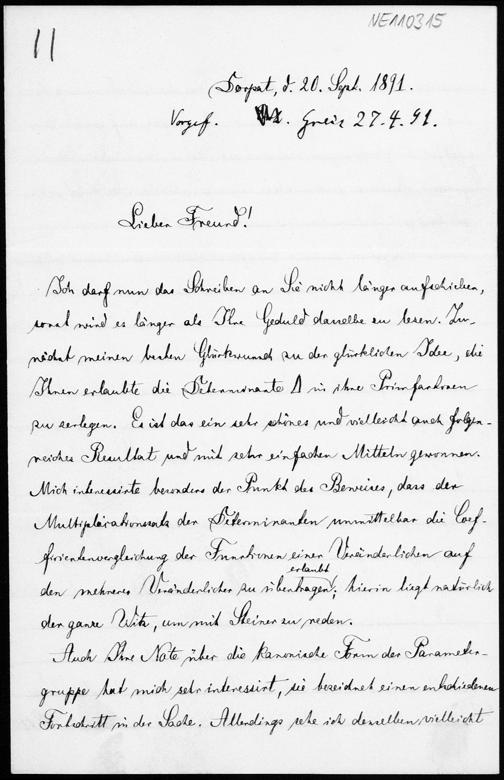 11
NE110315
Dorpat, d. 20. Sept. 1891.
Vorges. Greiz 27.4.91.
Lieber Freund!
Ich darf nun das Schreiben an Sie nicht länger aufschieben,
sonst wird es länger als Ihre Geduld dasselbe zu lesen. Zu-
nächst meinen besten Glückwunsch zu der glücklichen Idee, die
Ihnen erlaubte die Determinante Δ in ihre Primfactoren
zu zerlegen. Es ist das ein sehr schönes und vielleicht auch folgen-
reiches Resultat und mit sehr einfachen Mitteln gewonnen.
Mich interessirte besonders der Punkt des Beweises, dass der
Multiplicationssatz der Determinanten unmittelbar die Coef-
ficientenvergleichung der Functionen einer Veränderlichen auf
den mehrerer Veränderlicher zu übertragen erlaubt; hierin liegt natürlich
der ganze Witz, um mit Steiner zu reden.
Auch Ihre Note über die kanonische Form der Parameter-
gruppe hat mich sehr interessirt, sie bezeichnet einen entschiedenen
Fortschritt in der Sache. Allerdings sehe ich denselben vielleicht